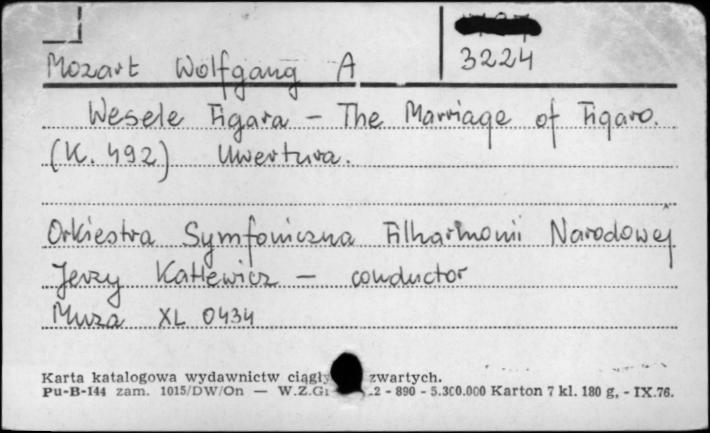 3224
Mozart Wolfgang A
Wesele Figara – The Marriage of Figaro.
(K. 492) Uwertura.
Orkiestra Symfoniczna Filharmonii Narodowej
Jerzy Katlewicz – conductor
Muza XL 0434
Karta katalogowa wydawnictw zwartych.
Pu-B-144 zam. 1015/DW/On — 2 - 890 - 5.300.000 Karton 7 kl. 180 g, - IX.76.